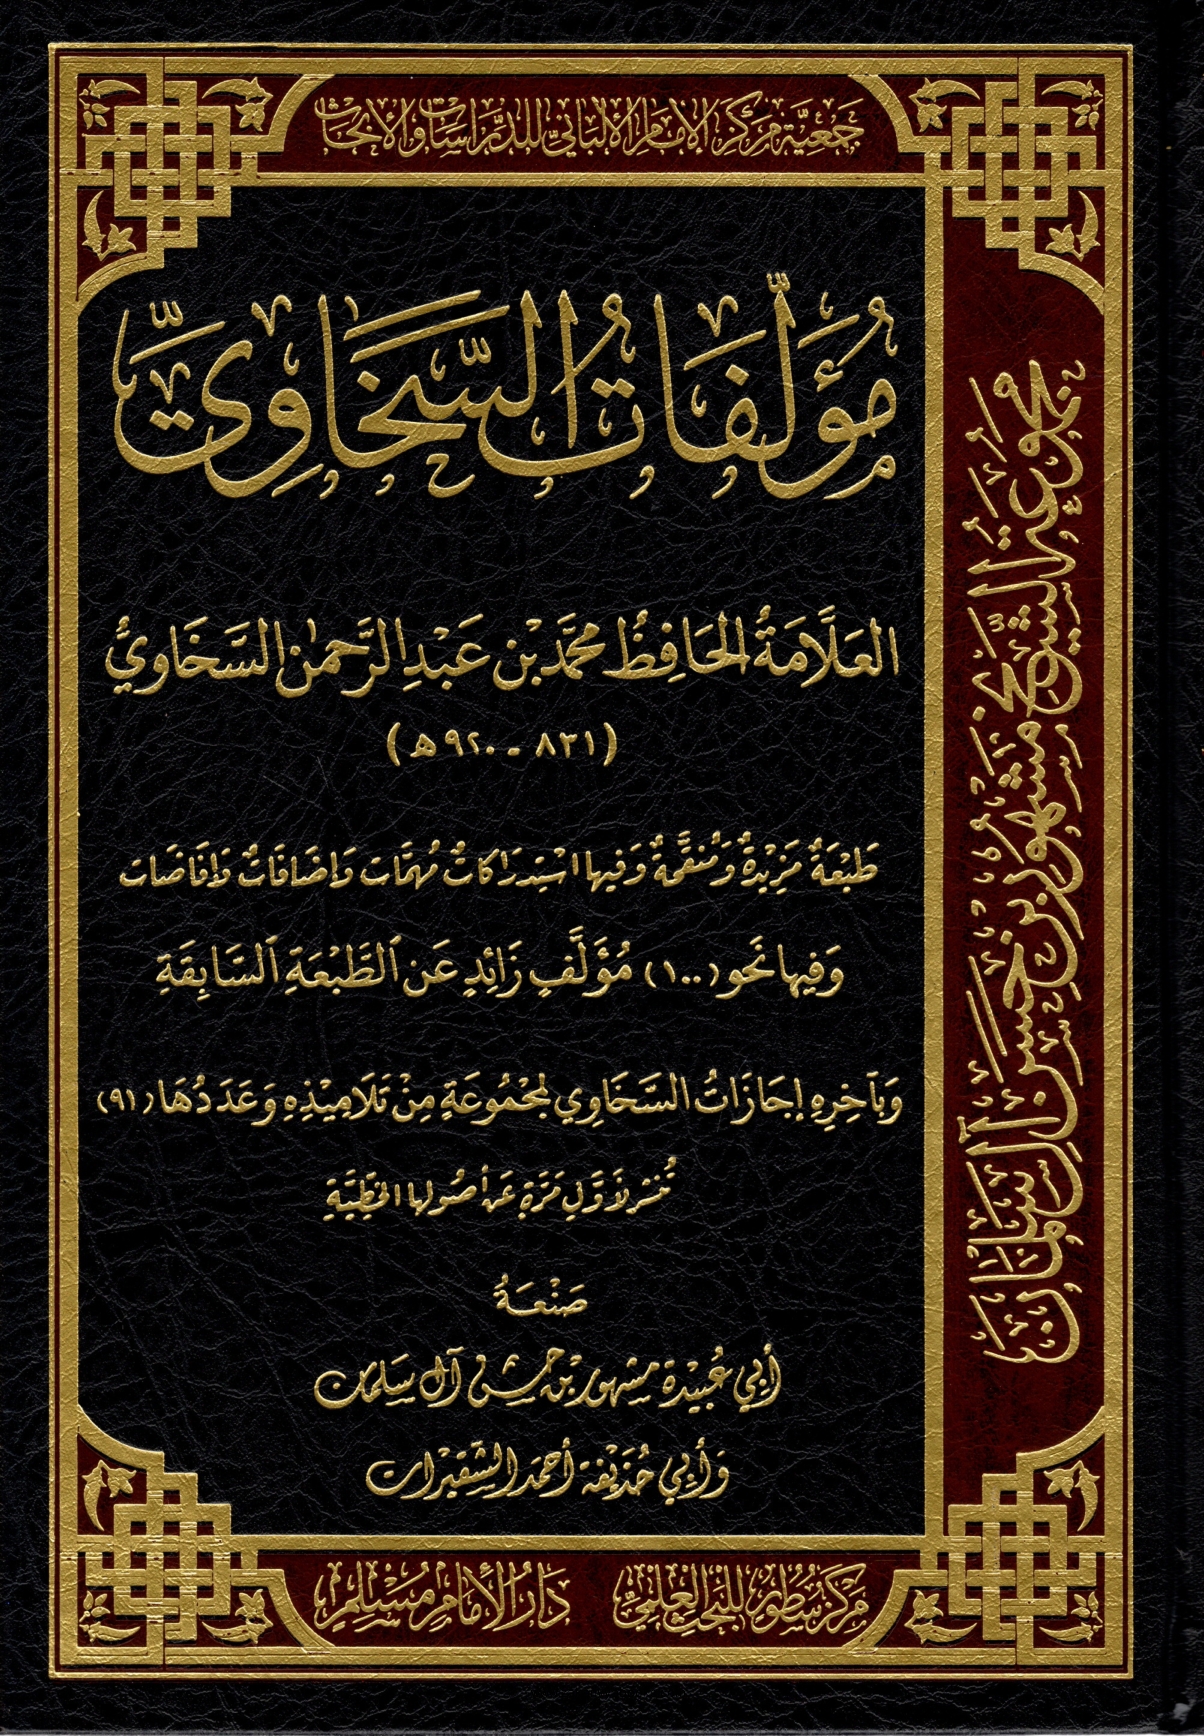 جمعية مركز الإمام الألباني للدراسات والأبحاث
مُؤَلَّفَاتُ السَّخَاوِيِّ
العَلَّامَةُ الحَافِظُ مُحَمَّد بْن عَبْدِ الرَّحمٰن السَّخَاوِيُّ
(٨٣١ - ٩٢٠هـ)
طَبْعَةٌ مَزِيْدَةٌ وَمُنَقَّحَةٌ وَفِيها اسْتِدرَاكَاتٌ مُهِمَّات وَإضَافَاتٌ وَإفَاضَات
وَفِيها نَحو (١٠٠) مُؤَلَّفٍ زَائِدٍ عَن الطَّبْعَةِ السَّابِقَةِ
وَبِآخِرِهِ إجَازَاتُ السَّخَاوِي لِمَجْمُوعَةٍ مِنْ تَلَامِيْذِهِ وَعَدَدُهَا (٩١)
تُنشر لأوَّلِ مَرَّةٍ عَن أصُولِها الخَطِّيَّةِ
صَنْعَةُ
أَبِي عُبَيْدَة مشهور بن حسن آل سَلمان
وَأَبِي حُذَيْفَة أحمَد الشقيرات
مجموعة الشيخ مشهور بن حسن آل سلمان
مركز سطور للبحث العلمي
دَارُ الإِمَامِ مُسْلِمٍ